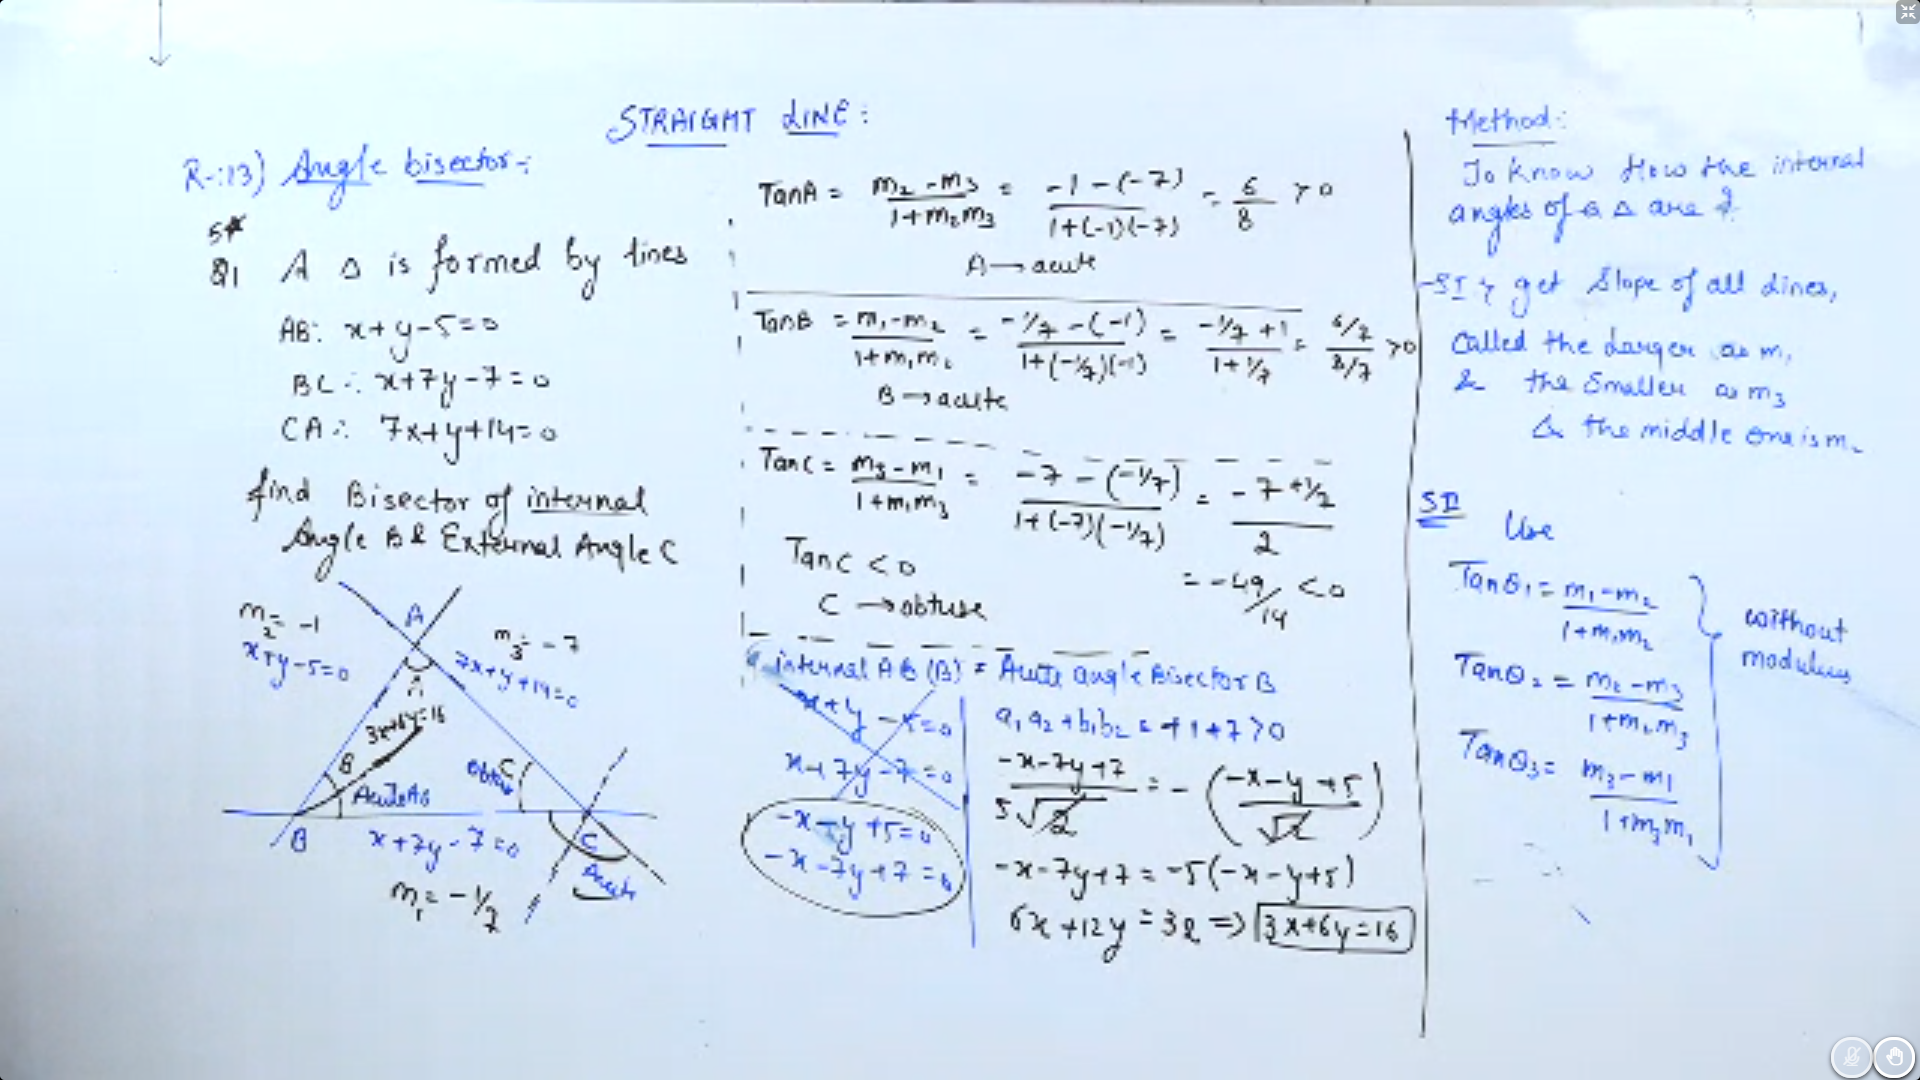 STRAIGHT LINE:
R-:13) Angle bisector:
5*
Q1 A Δ is formed by lines
AB: x+y-5=0
BC: x+7y-7=0
CA: 7x+y+14=0
find Bisector of internal
Angle B & External Angle C
m₂ = -1
x+y-5=0
A
m₃ = -7
7x+y+14=0
A
3x+6y=16
B
Acute AB
Obtuse C
B
x+7y-7=0
C
Acute
m₁ = -1/7
TanA = (m₂-m₃)/(1+m₂m₃) = (-1-(-7))/(1+(-1)(-7)) = 6/8 >0
A → acute
TanB = (m₁-m₂)/(1+m₁m₂) = (-1/7-(-1))/(1+(-1/7)(-1)) = (-1/7+1)/(1+1/7) = (6/7)/(8/7) >0
B → acute
TanC = (m₃-m₁)/(1+m₁m₃) = (-7-(-1/7))/(1+(-7)(-1/7)) = (-7+1/7)/2
TanC < 0
= -49/14 < 0
C → obtuse
internal AB (B) = Acute angle Bisector B
x+y-5=0
x+7y-7=0
-x-y+5=0
-x-7y+7=0
a₁a₂+b₁b₂ = +1+7>0
(-x-7y+7)/(5√2) = -((-x-y+5)/√2)
-x-7y+7 = -5(-x-y+5)
6x+12y = 32 ⇒ 3x+6y=16
Method:
To know How the internal
angles of a Δ are ?
SI → get Slope of all Lines,
Called the Larger as m₁
& the Smaller as m₃
& the middle one is m₂
SII Use
Tanθ₁ = (m₁-m₂)/(1+m₁m₂)
Tanθ₂ = (m₂-m₃)/(1+m₂m₃)
Tanθ₃ = (m₃-m₁)/(1+m₃m₁)
without
modulus